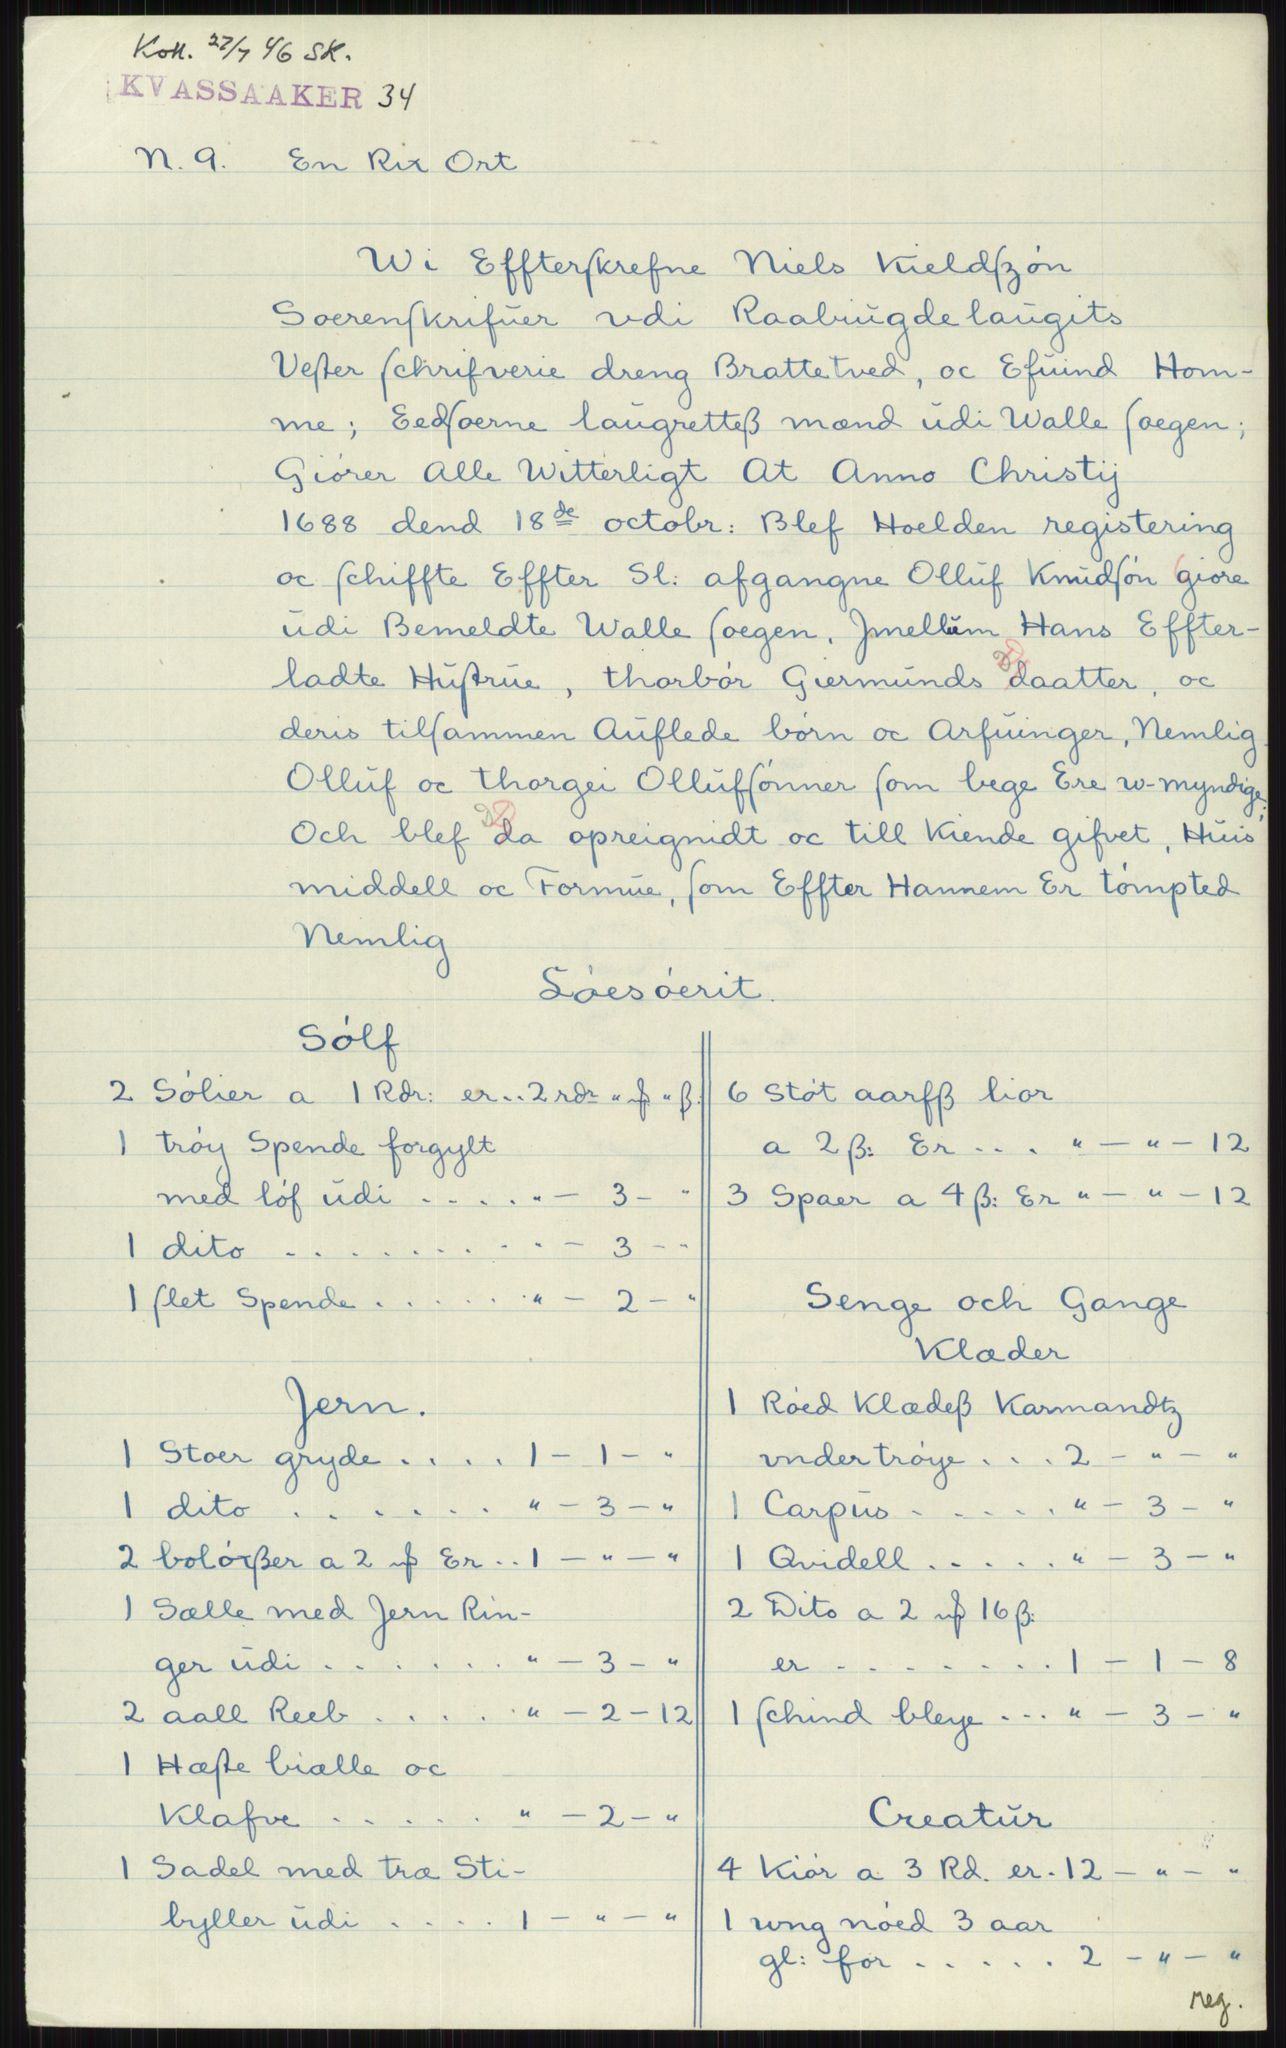 Koll. 27/7 46 SK.
KVASSAAKER 34
N. 9. En Rix Ort
Wi Effterskrefne Niels Kieldszón
Soerenskrifuer udi Raabiugdelaugits
Vester schrifverie dreng Brattetved, oc Efuind Hom-
me; Eedsoerne laugretteß mænd udi Walle soegen;
Giórer Alle Witterligt At Anno Christij
1688 dend 18de octobr: Blef Hoelden registering
oc schiffte Effter Sl: afgangne Olluf Knudsón giore
udi Bemeldte Walle soegen, Jmellum Hans Effter-
ladte Hustrue, thorbór Giermunds daatter, oc
deris tilsammen Auflede bórn oc Arfuinger, Nemlig
Olluf oc thorgei Ollufsónner som bege Ere w-myndige;
Och blef da opreignidt oc till Kiende gifvet, Huis
middell oc Formue, som Effter Hannem Er tómpted
Nemlig
Lóesóerit.
Sólf
2 Sólier a 1 Rdr: er.. 2 rdr " ꝑ " ß:
1 tróy Spende forgylt
med lóf udi .... " - 3 - "
1 dito ......... " - 3 - "
1 slet Spende ...... " - 2 - "
Jern.
1 Stoer gryde .... 1 - 1 - "
1 dito ....... " - 3 - "
2 bolóxßer a 2 ꝑ Er .. 1 - " - "
1 Sælle med Jern Rin-
ger udi ....... " - 3 - "
2 aall Reeb ..... " - 2 - 12
1 Hæste biælle oc
Klafve ...... " - 2 - "
1 Sadel med træ Sti-
byller udi .... 1 - " - "
6 Stót aarfß lior
a 2 ß: Er ... " - " - 12
3 Spaer a 4 ß: Er " - " - 12
Senge och Gange
Klæder
1 Róed Klædeß Karmandtz
vndertróye ... 2 - " - "
1 Carpus ..... " - 3 - "
1 Qvidell ..... " - 3 - "
2 Dito a 2 ꝑ 16 ß:
er ........ 1 - 1 - 8
1 schind bleye ... " - 3 - "
Creatur
4 Kiór a 3 Rd. er. 12 - " - "
1 ung nóed 3 aar
gl: for ..... 2 - " - "
reg.